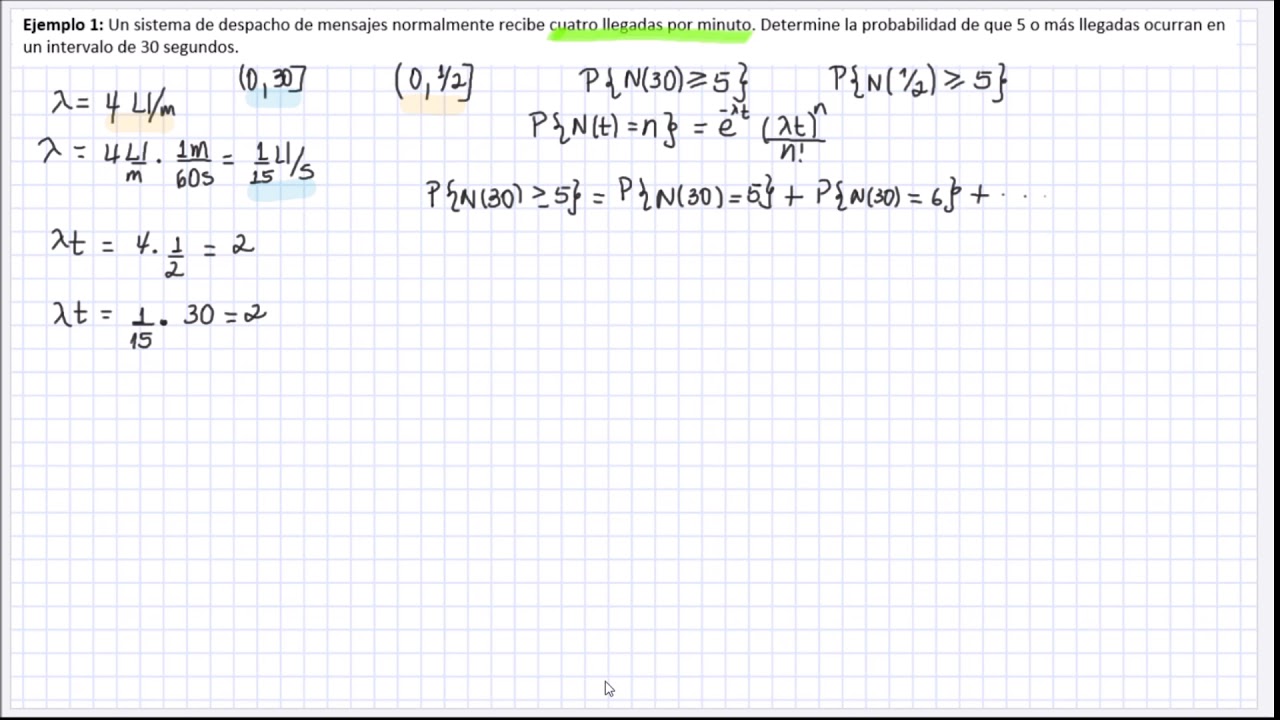 Ejemplo 1: Un sistema de despacho de mensajes normalmente recibe cuatro llegadas por minuto. Determine la probabilidad de que 5 o más llegadas ocurran en
un intervalo de 30 segundos.
λ = 4 Ll/m
(0, 30]
(0, 1/2]
P{N(30) ≥ 5}
P{N(1/2) ≥ 5}
P{N(t) = n} = e^{-λt} (λt)^n / n!
λ = 4 Ll/m · 1m/60s = 1/15 Ll/s
P{N(30) ≥ 5} = P{N(30) = 5} + P{N(30) = 6} + · · ·
λt = 4 · 1/2 = 2
λt = 1/15 · 30 = 2